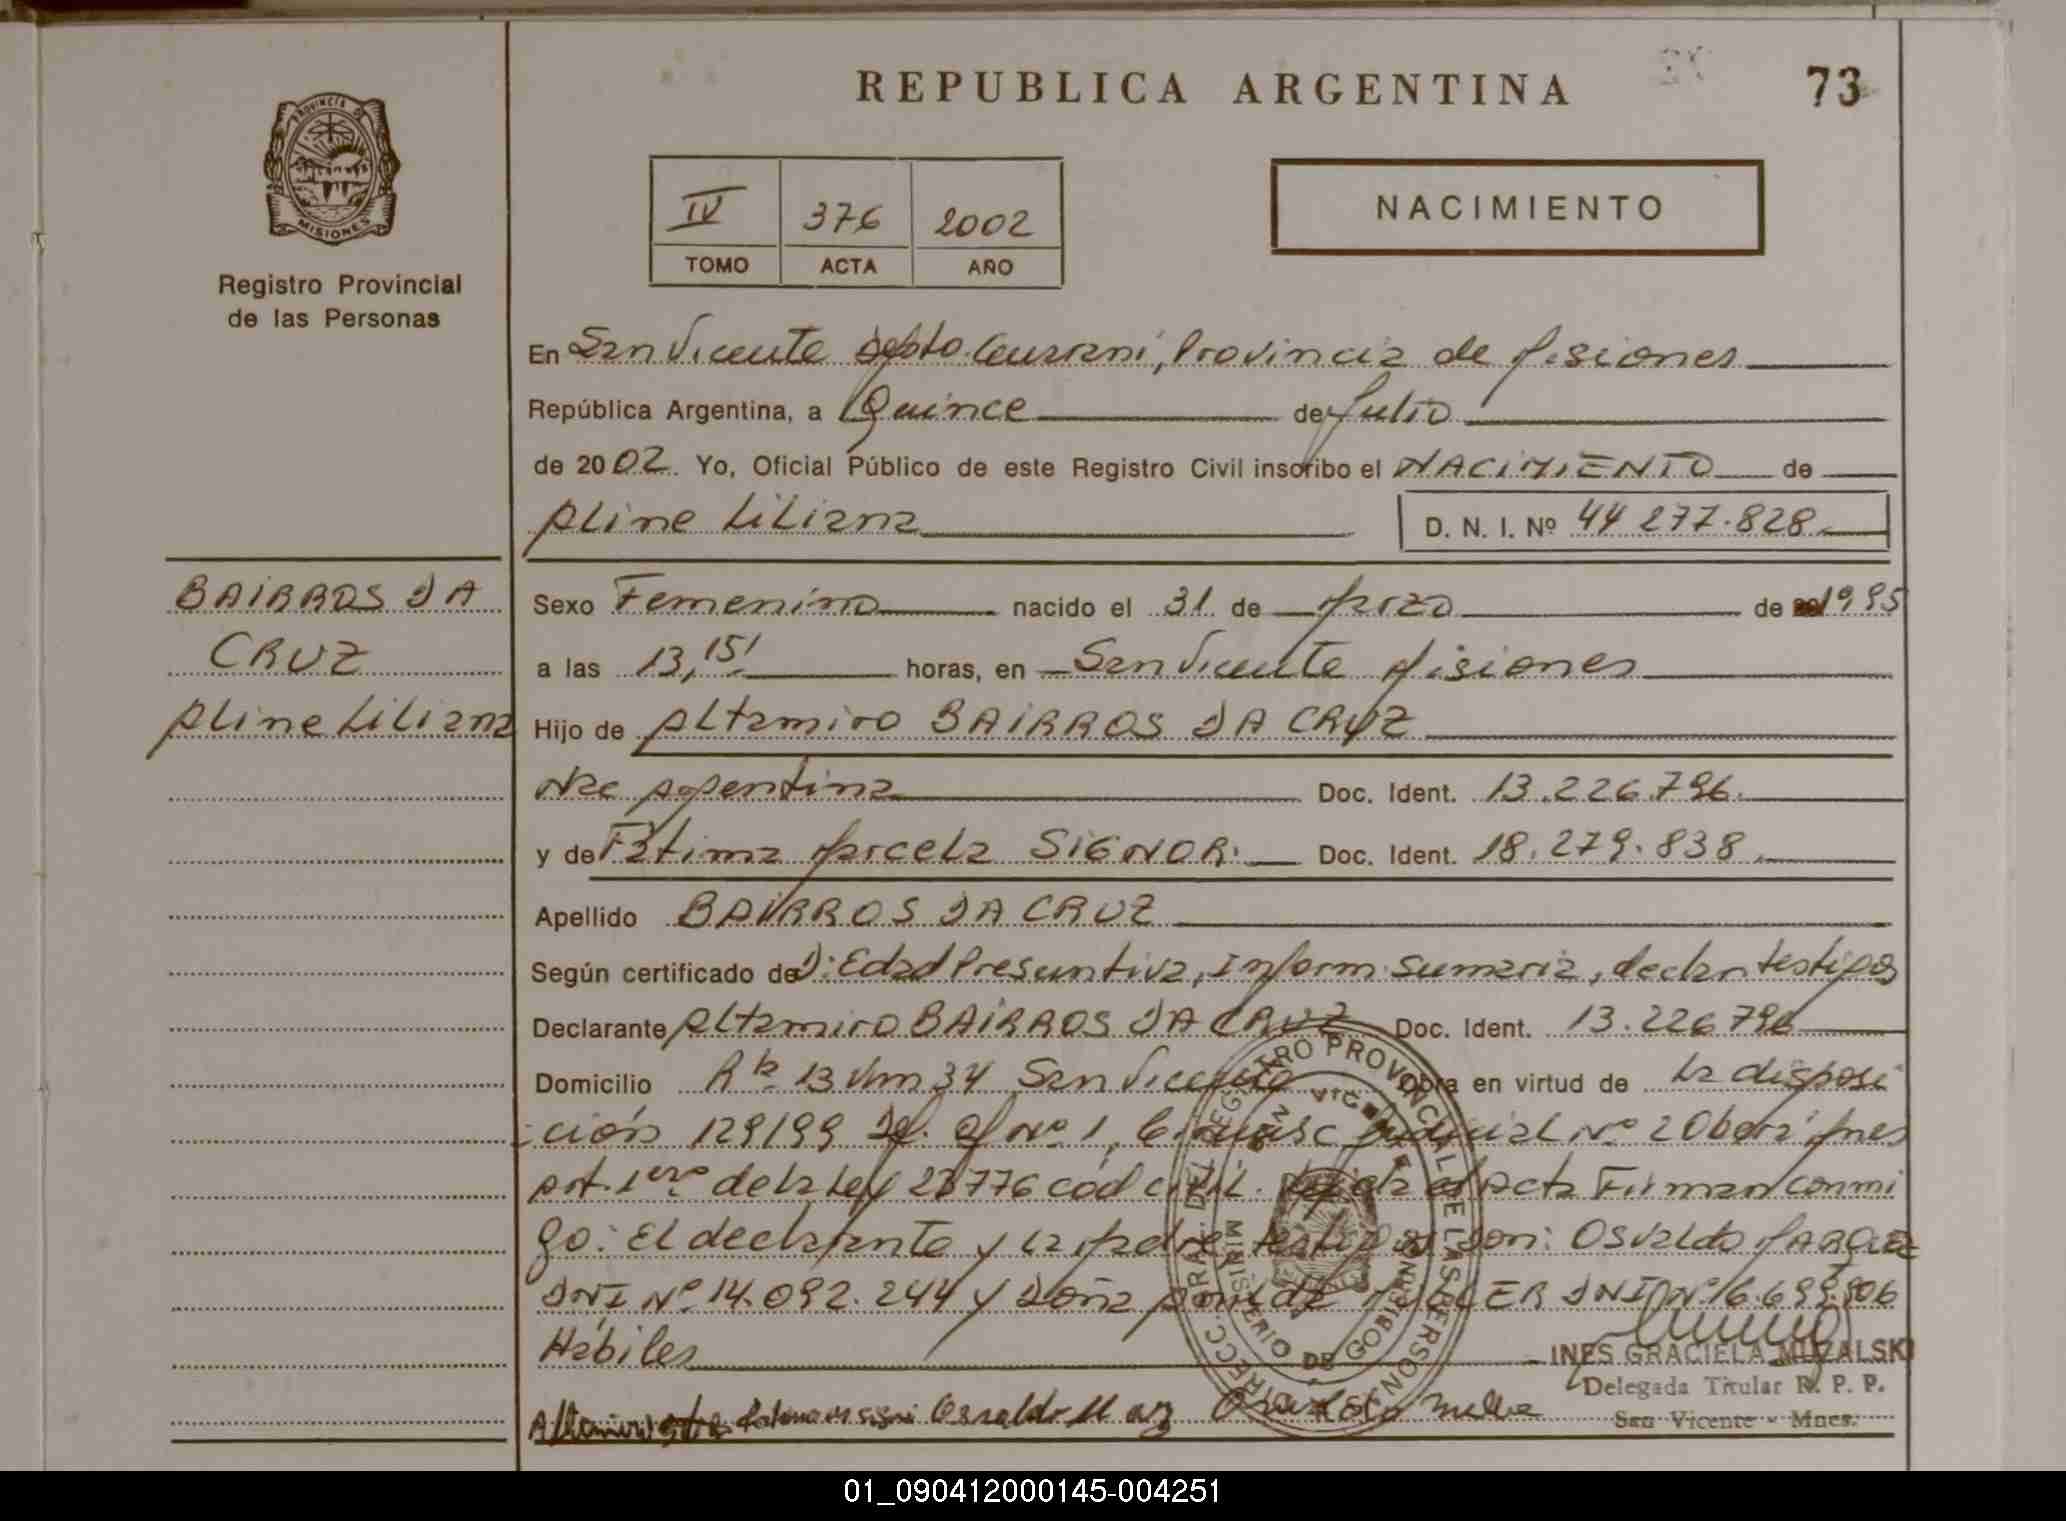 REPUBLICA ARGENTINA
73
PROVINCIA DE
MISIONES
Registro Provincial
de las Personas
IV 376 2002
TOMO ACTA AÑO
NACIMIENTO
En San Vicente Depto. Guarani, Provincia de Misiones
República Argentina, a Quince de Julio
de 2002. Yo, Oficial Público de este Registro Civil inscribo el NACIMIENTO de
Aline Liliana D. N. I. Nº 44 277.828
BAIRROS DA
CRUZ
Aline Liliana
Sexo Femenino nacido el 31 de Marzo de 1995
a las 13,15' horas, en San Vicente Misiones
Hijo de Altamiro BAIRROS DA CRUZ
Nac Argentina Doc. Ident. 13.226.796.
y de Fátima Marcela SIGNOR. Doc. Ident. 18.279.838
Apellido BAIRROS DA CRUZ
Según certificado de D: Edad Presuntiva, Inform. sumaria, declar. testigos
Declarante Altamiro BAIRROS DA CRUZ Doc. Ident. 13.226.796
Domicilio R 13 Km 34 San Vicente Obra en virtud de la disposi
ción 129/99 Of Nº 1, Judicial Nº 2 Oberá Mnes
Art. 1ero de la Ley 23776 cód civil. el Acta Firman conmi
go: El declarante y la Madre testigos son: Osvaldo
DNI Nº 14.092.244 y Doña DNI Nº 6.699.906
Hábiles
INES GRACIELA MUZALSKI
Delegada Titular R. P. P.
San Vicente - Mnes.
Osvaldo
DIRECC. GRAL. DEL REGISTRO PROVINCIAL DE LAS PERSONAS
SAN VICENTE
MINISTERIO DE GOBIERNO
01_090412000145-004251